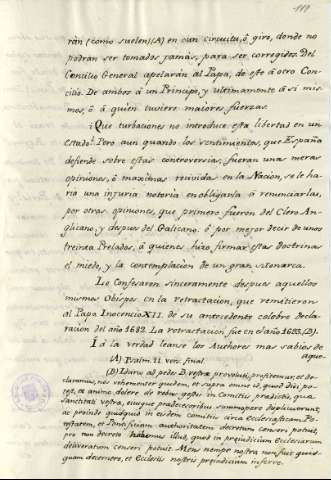 119
rán (como suelen) (A) en un circuitu, ó giro, donde no
podran ser tomados jamás, para ser corregidos. Del
Concilio General apelarán al Papa, de este á otro Con-
cilio. De ambos à un Principe, y ultimamente à si mis-
mos, ò à quien tuviere maiores fuerzas.
¡Que turbaciones no introduce esta libertad en un
estado! Pero aun quando los sentimientos, que España
defiende sobre estas controversias, fueran unas meras
opiniones, ó maximas recivida en la Nacion, se le ha-
ria una injuria notoria en obligarla à renunciarlas,
por otras opiniones, que primero fueron del Clero An-
glicano, y despues del Galicano, ó por mejor decir de unos
treinta Prelados, à quienes hizo firmar estas Doctrinas
el miedo, y la contemplacion de un gran Monarca.
Lo Confesaron sinceramente despues aquellos
mismos Obispos en la retractacion, que remitieron
al Papa Inocencio XII. de su antecedente celebre Decla-
racion del año 1682. La retractacion fue en el año 1683. (D).
I á la verdad leanse los Authores mas sabios de
aque-
(A) Psalm. 11. vers. final.
(D) Idaru ad pedes D. vestræ provoluti, profitemur, et de-
claramus, nos vehementer quidem, et supra omne id, quod dici po-
test, ex animo dolere de rebus gestis in Comitiis prædictis, quæ
Sanctitati vestræ, eiusque prædecessoribus summopere displicuerunt,
ac proinde quidquid in eisdem comitiis circa ecclesiasticam Po-
testatem, et Pontificiam authoritatem decretum censeri potuit,
pro non decreto habemus illud, quod in prejudicium Ecclesiarum
deliveratum censeri potuit. Mens nempe nostra non fuit quid-
quam decernere, et Eclesiis nostris prejudicium inferre.